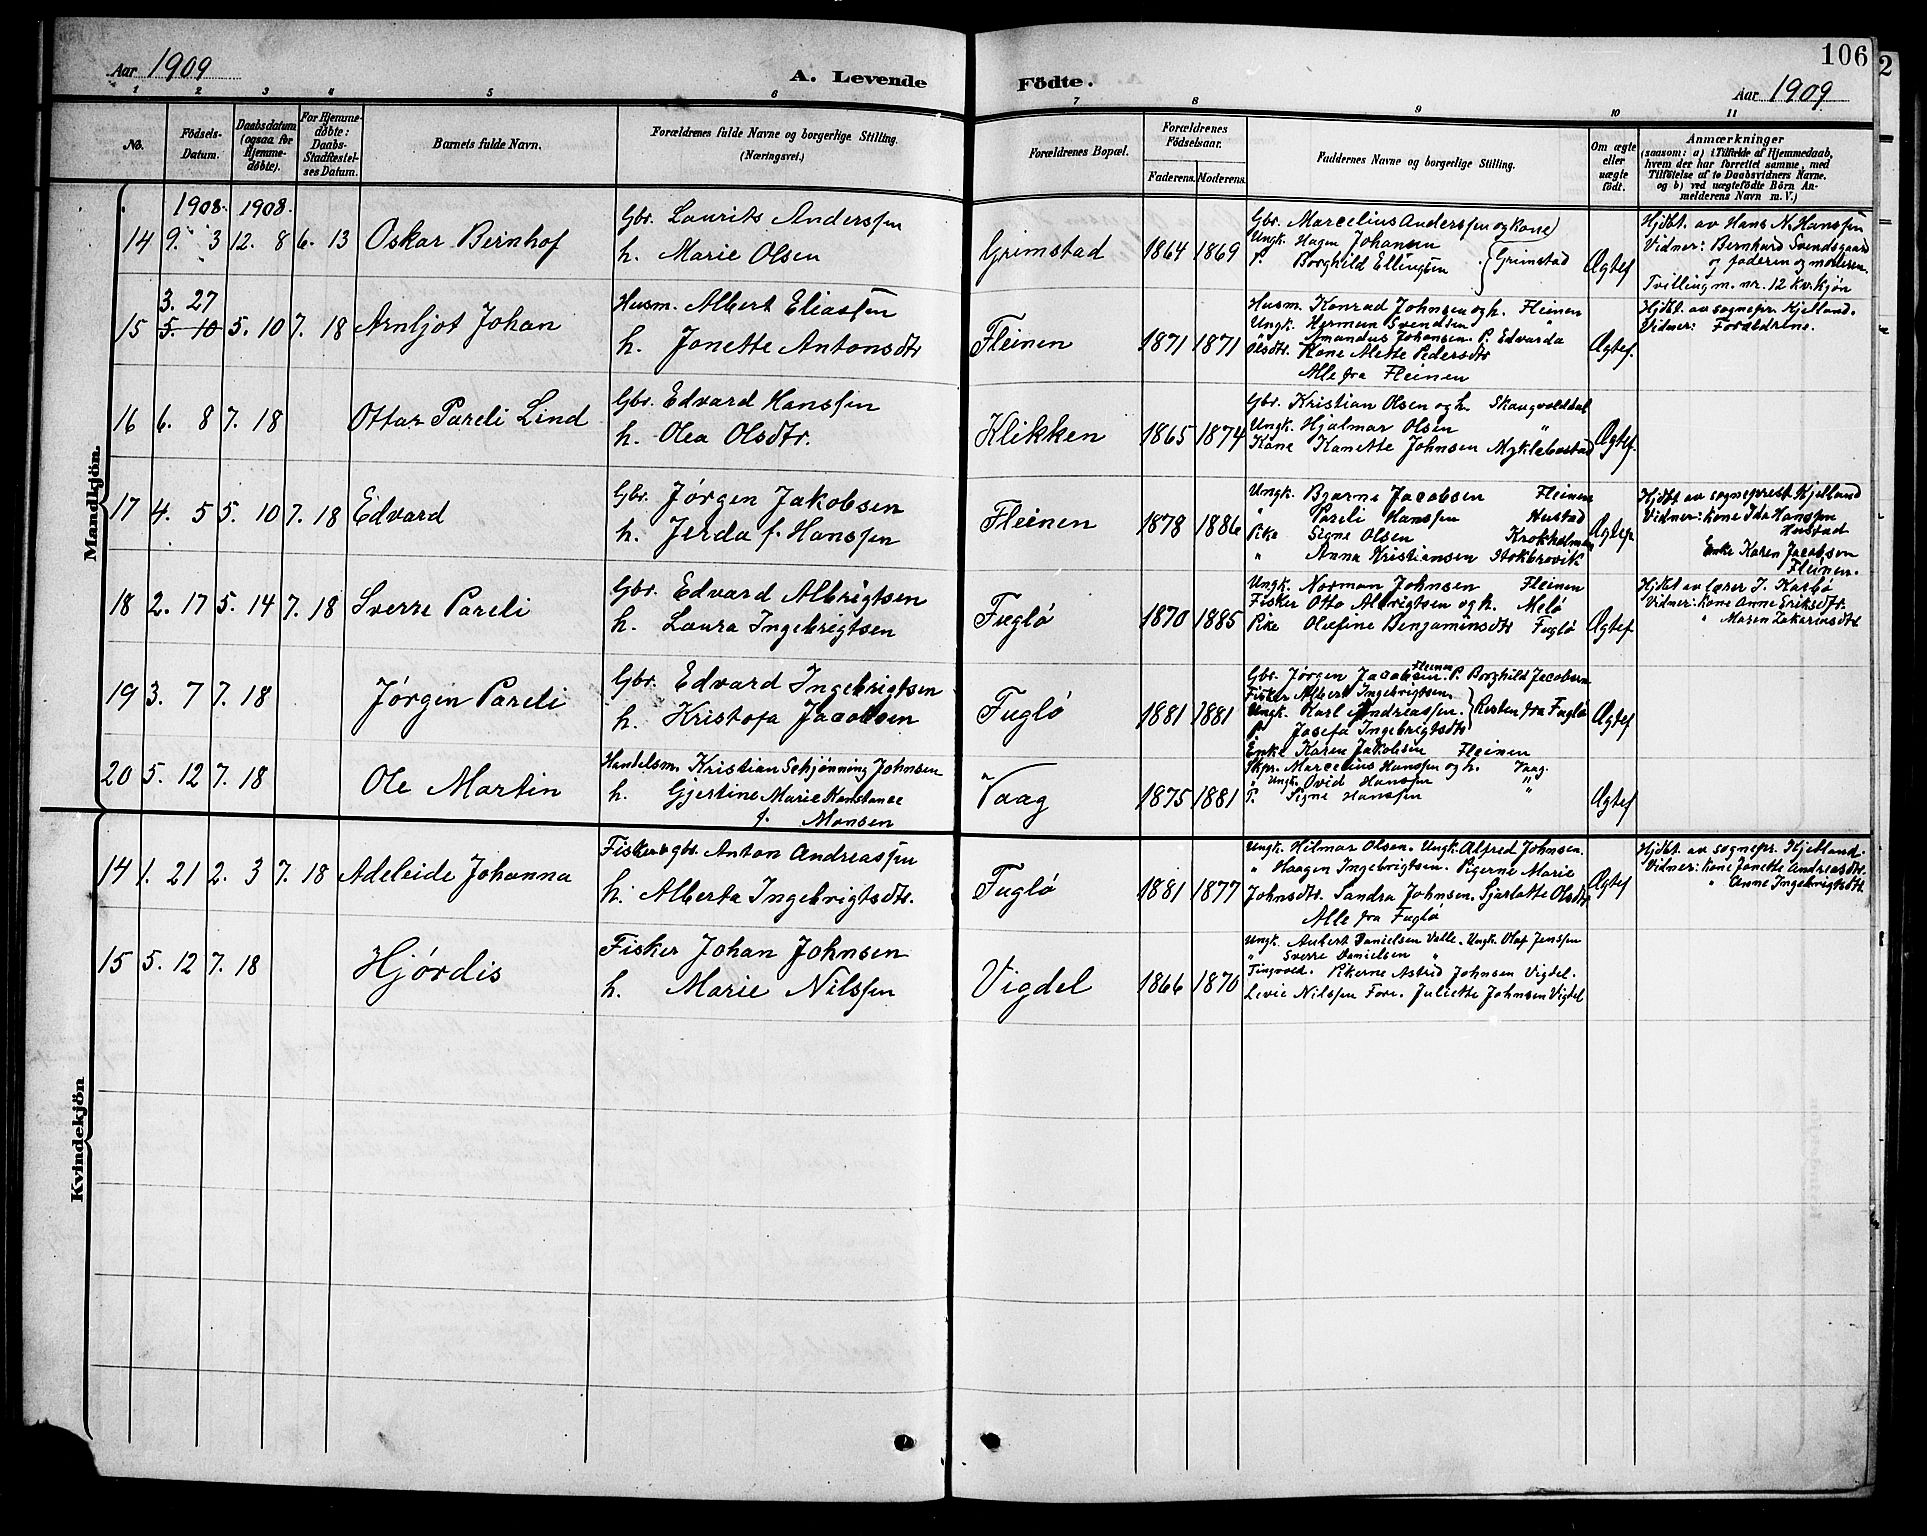 106
2
Aar 1909
A. Levende Födte.
Aar 1909
1 2 3 4 5 6 7 8 9 10 11
No.
Födsels-
Datum.
Daabsdatum
(ogsaa for
Hjemme-
döbte).
For Hjemme-
döbte:
Daabs-
Stadfestel-
ses Datum.
Barnets fulde Navn.
Forældrenes fulde Navne og borgerlige Stilling.
(Næringsvei.)
Forældrenes Bopæl.
Forældrenes
Födselsaar.
Faderens. Moderens.
Faddernes Navne og borgerlige Stilling.
Om ægte
eller
uægte
födt.
Anmærkninger
(saasom: a) i Tilfælde af Hjemmedaab,
hvem der har forrettet samme, med
Tilföielse af to Daabsvidners Navne.
og b) ved uægtefödte Börn An-
melderens Navn m. V.)
Mandkjön.
1908. 1908.
14 9. 3 12. 8 6. 13 Oskar Bernhof
Gbr. Laurits Anderssen
h. Marie Olsen
Grimstad 1864 1869
Gbr. Marcelius Anderssen og kone
Ungk. Hagen Johansen
P. Borghild Ellingsen Grimstad
Ægtef
Hjdbt. av Hans N. Hanssen
Vidner: Bernhard Svendsgaard
og faderen og moderen.
Tvilling m. nr. 12 kv.kjøn
3. 27
15 5. 10 5. 10 7. 18 Arnljot Johan
Husm. Albert Eliassen
h. Jonette Antonsdtr
Fleinen 1871 1871
Husm. Konrad Johnsen og h. Fleinen
Ungk. Herman Svendsen "
" Amandus Johansen. P. Edvarda
Olsdtr. Kone Mette Pedersdtr
Alle fra Fleinen
Ægtef.
Hjdbt. av sognepr. Kjelland.
Vidner: Forældrene.
16 6. 8 7. 18 Ottar Pareli Lind
Gbr. Edvard Hanssen
h. Olea Olsdtr.
Klikken 1865 1874
Gbr. Kristian Olsen og h. Skaugvolddal
Ungk. Hjalmar Olsen "
Kone Kanette Johnsen Myklebostad
Ægtef.
17 4. 5 5. 10 7. 18 Edvard
Gbr. Jørgen Jakobsen
h. Jerda f. Hanssen
Fleinen 1878 1886
Ungk. Bjarne Jacobsen Fleinen
" Pareli Hanssen Hustad
Pike Signe Olsen Krokholmen
" Anna Kristiansen Stokbrovik
Ægtef.
Hjdbt av sogneprest Kjelland
Vidner: Kone Ida Hanssen
Hustad
Enke Karen Jacobsen
Fleinen.
18 2. 17 5. 14 7. 18 Sverre Pareli
Gbr. Edvard Albrigtsen
h. Laura Ingebrigtsen
Fuglø 1870 1885
Ungk. Norman Johnsen Fleinen
Fisker Otto Albrigtsen og h. Melø
Pike Olufine Benjaminsdtr Fuglø
Ægtef.
Hjdbt av lærer J. Karbø
Vidner: Kone Anne Eriksdtr.
" Maren Zakariasdtr
19 3. 7 7. 18 Jørgen Pareli
Gbr. Edvard Ingebrigtsen
h. Kristofa Jacobsen
Fuglø 1881 1881
Gbr. Jørgen Jacobsen Fleinen. P. Borghild Jacobsen
Fisker Albert Ingebrigtsen.
Ungk. Karl Andreassen. Resten fra Fuglø
P. Josefa Ingebrigtsdtr
Enke Karen Jakobsen Fleinen
Ægtef
20 5. 12 7. 18 Ole Martin
Handelsm. Kristian Schjønning Johnsen
h. Gjertine Marie Konstanse
f. Monsen
Vaag 1875 1881
Skpr. Marcelius Hanssen og h. Vaag.
" Ungk. Ovid Hanssen "
P. Signe Hanssen
Ægtef
Kvindekjön
14 1. 21 2. 3 7. 18 Adeleide Johanna
Fisker gbr. Anton Andreassen
h. Alberta Ingebrigtsdtr.
Fuglø 1881 1877
Ungk. Hilmar Olsen. Ungk. Alfred Johnsen.
" Haagen Ingebrigtsen. Pigerne Marie
Johnsdtr. Sandra Johnsen. Sjarlotte Olsdtr
Alle fra Fuglø
Ægtef
Hjdbt. av sognepr. Kjelland.
Vidner: Kone Jonette Andreasdtr.
" Anne Ingebrigtsdtr
15 5. 12 7. 18 Hjørdis
Fisker Johan Johnsen
h. Marie Nilssen
Vigdel 1866 1870
Ungk. Aubert Danielsen Valle. Ungk. Olaf Jenssen
" Sverre Danielsen "
Tingvold. Pikerne Astrid Johnsen Vigdel.
Levie Nilssen Fore. Juliette Johnsen Vigdel